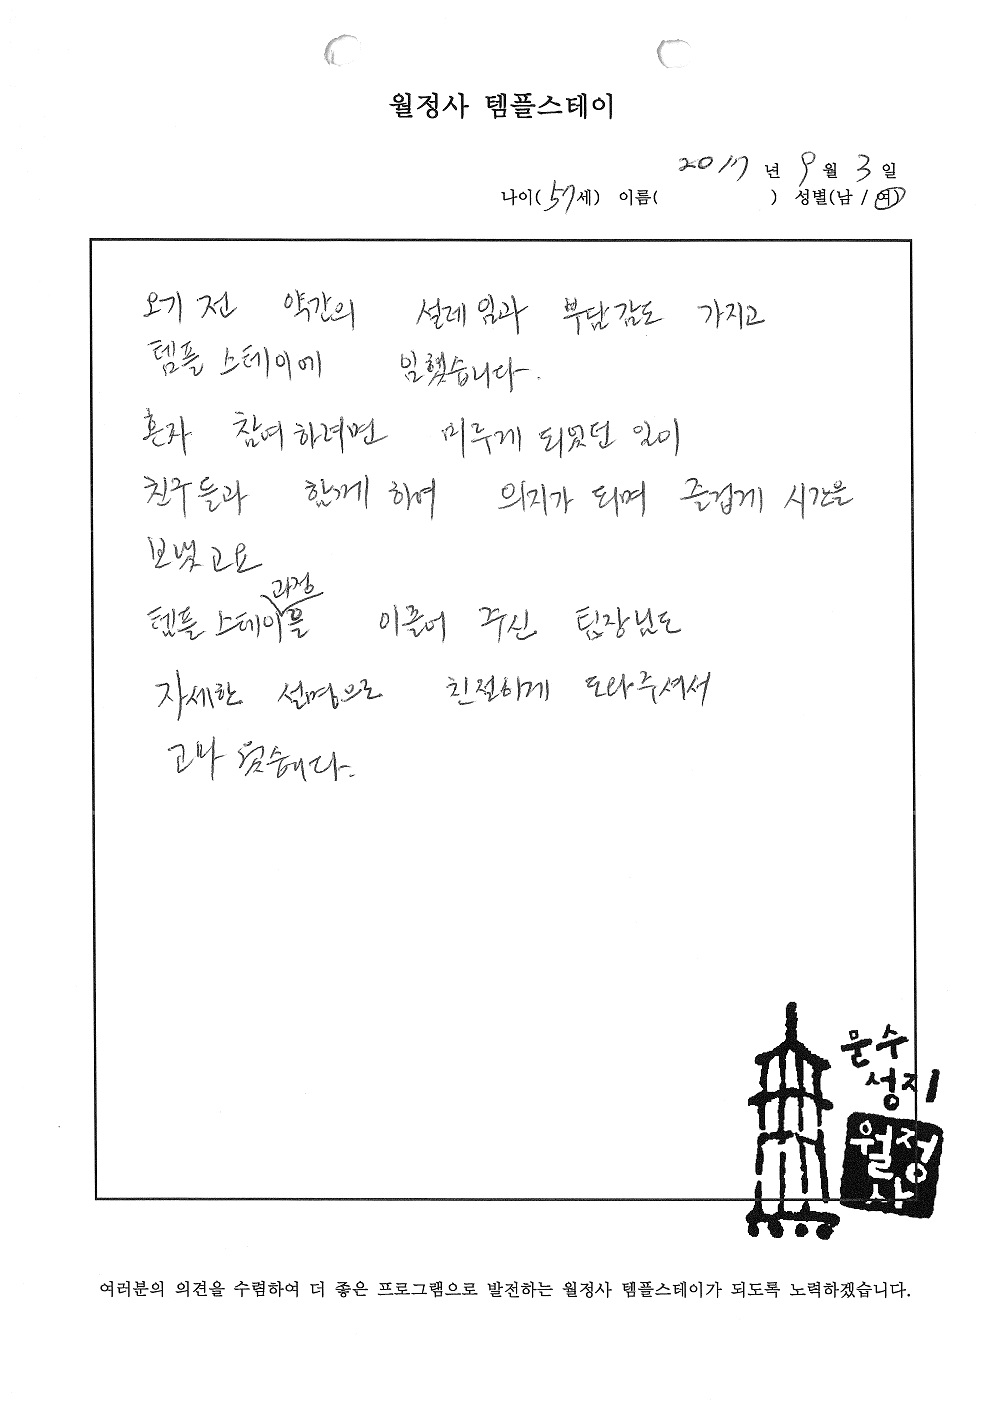 월정사 템플스테이
2017 년 9 월 3 일
나이( 57 세) 이름( ) 성별(남 / 여)
오기 전 약간의 설레임과 부담감도 가지고
템플 스테이에 임했습니다.
혼자 참여하려면 미루게 되었던 일이
친구들과 함께 하여 의지가 되며 즐겁게 시간을
보냈고요
템플 스테이 과정을 이끌어 주신 팀장님도
자세한 설명으로 친절하게 도와주셔서
고마웠습니다.
문수
성지
월정
사
여러분의 의견을 수렴하여 더 좋은 프로그램으로 발전하는 월정사 템플스테이가 되도록 노력하겠습니다.